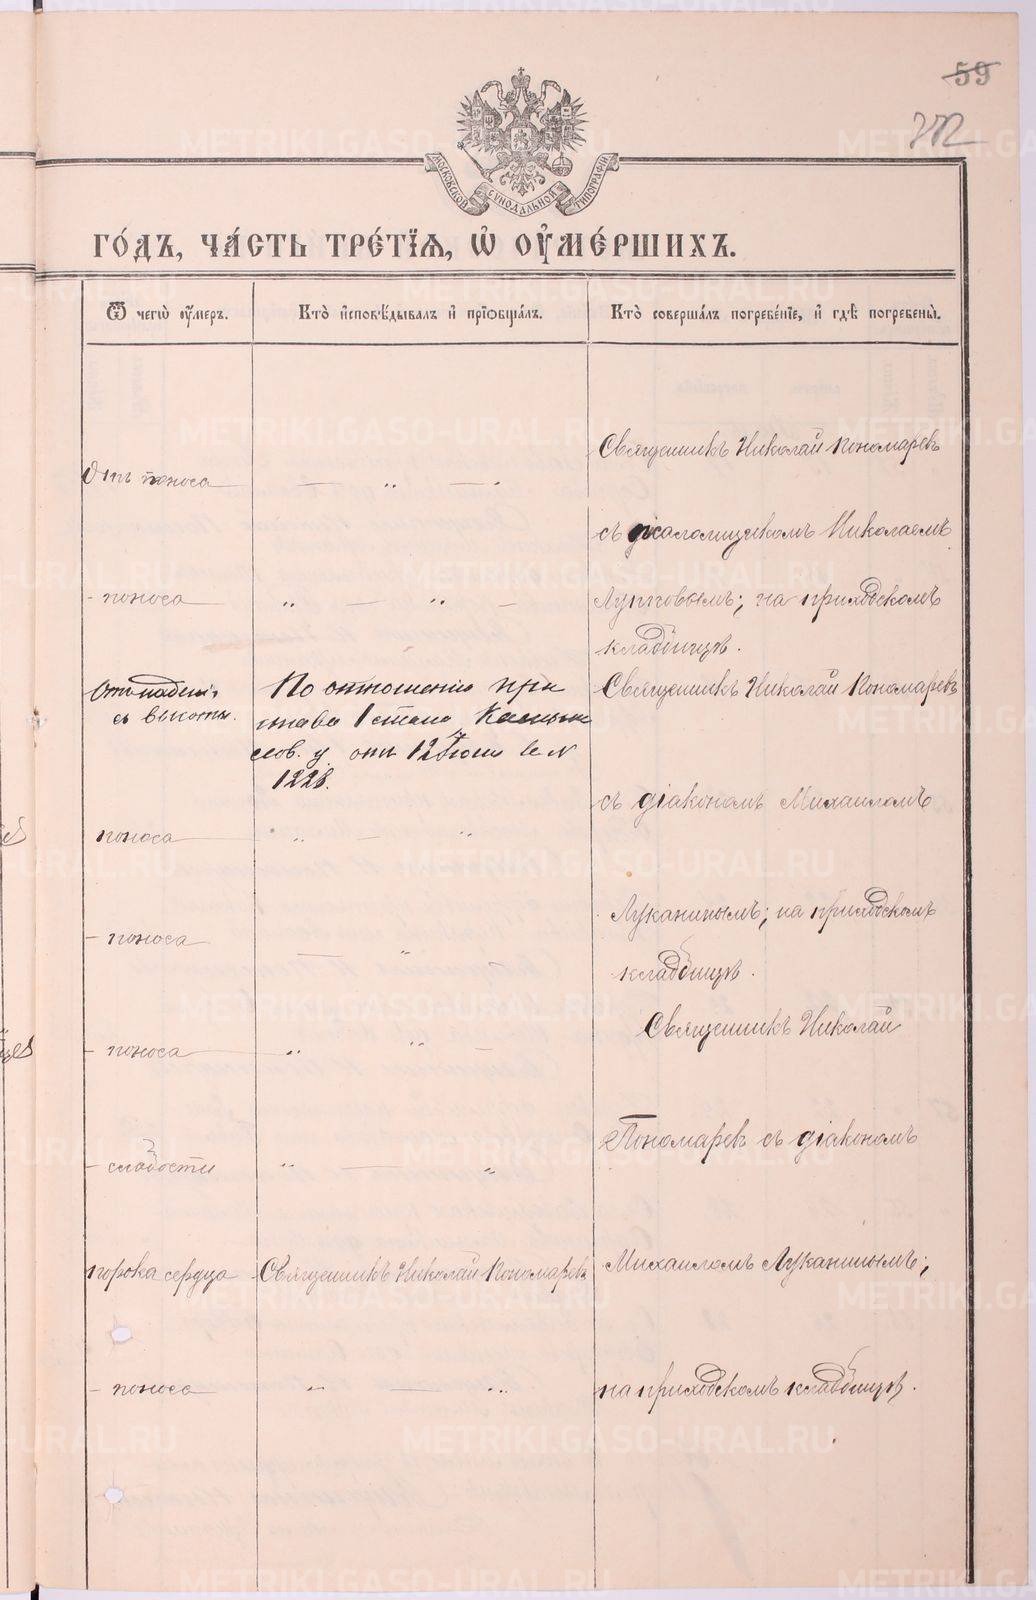 59
МОСКОВСКОЙ СѴНОДАЛЬНОЙ ТИПОГРАФІИ
ГО́ДЪ, ЧА́СТЬ ТРЕ́ТІѦ, Ѽ ОУ҆МЕ́РШИХЪ.
Ѿ чегѡ̀ оу҆́меръ.
Кто̀ и҆сповѣ́дывалъ и҆ прїѡбща́лъ.
Кто̀ соверша́лъ погребе́нїе, и҆ гдѣ̀ погребены̀.
Священникъ Николай Пономаревъ
Отъ поноса — „ —
съ псаломщикомъ Николаемъ
- поноса „ — „ —
; на приходскомъ
кладбищѣ.
съ высоты.
По отношенію при
става 1 стана Камыш
лов. у. отъ 12 Іюня за №
1228.
Священникъ Николай Пономаревъ
съ діакономъ Михаиломъ
поноса „ — „
Луканинымъ; на приходскомъ
- поноса — „
кладбищѣ.
Священникъ Николай
- поноса „ „ —
Пономаревъ съ діакономъ
- слабости „ — „
Михаиломъ Луканинымъ;
порока сердца
Священникъ Николай Пономаревъ
- поноса „ — „
на приходскомъ кладбищѣ.
METRIKI.GASO-URAL.RU